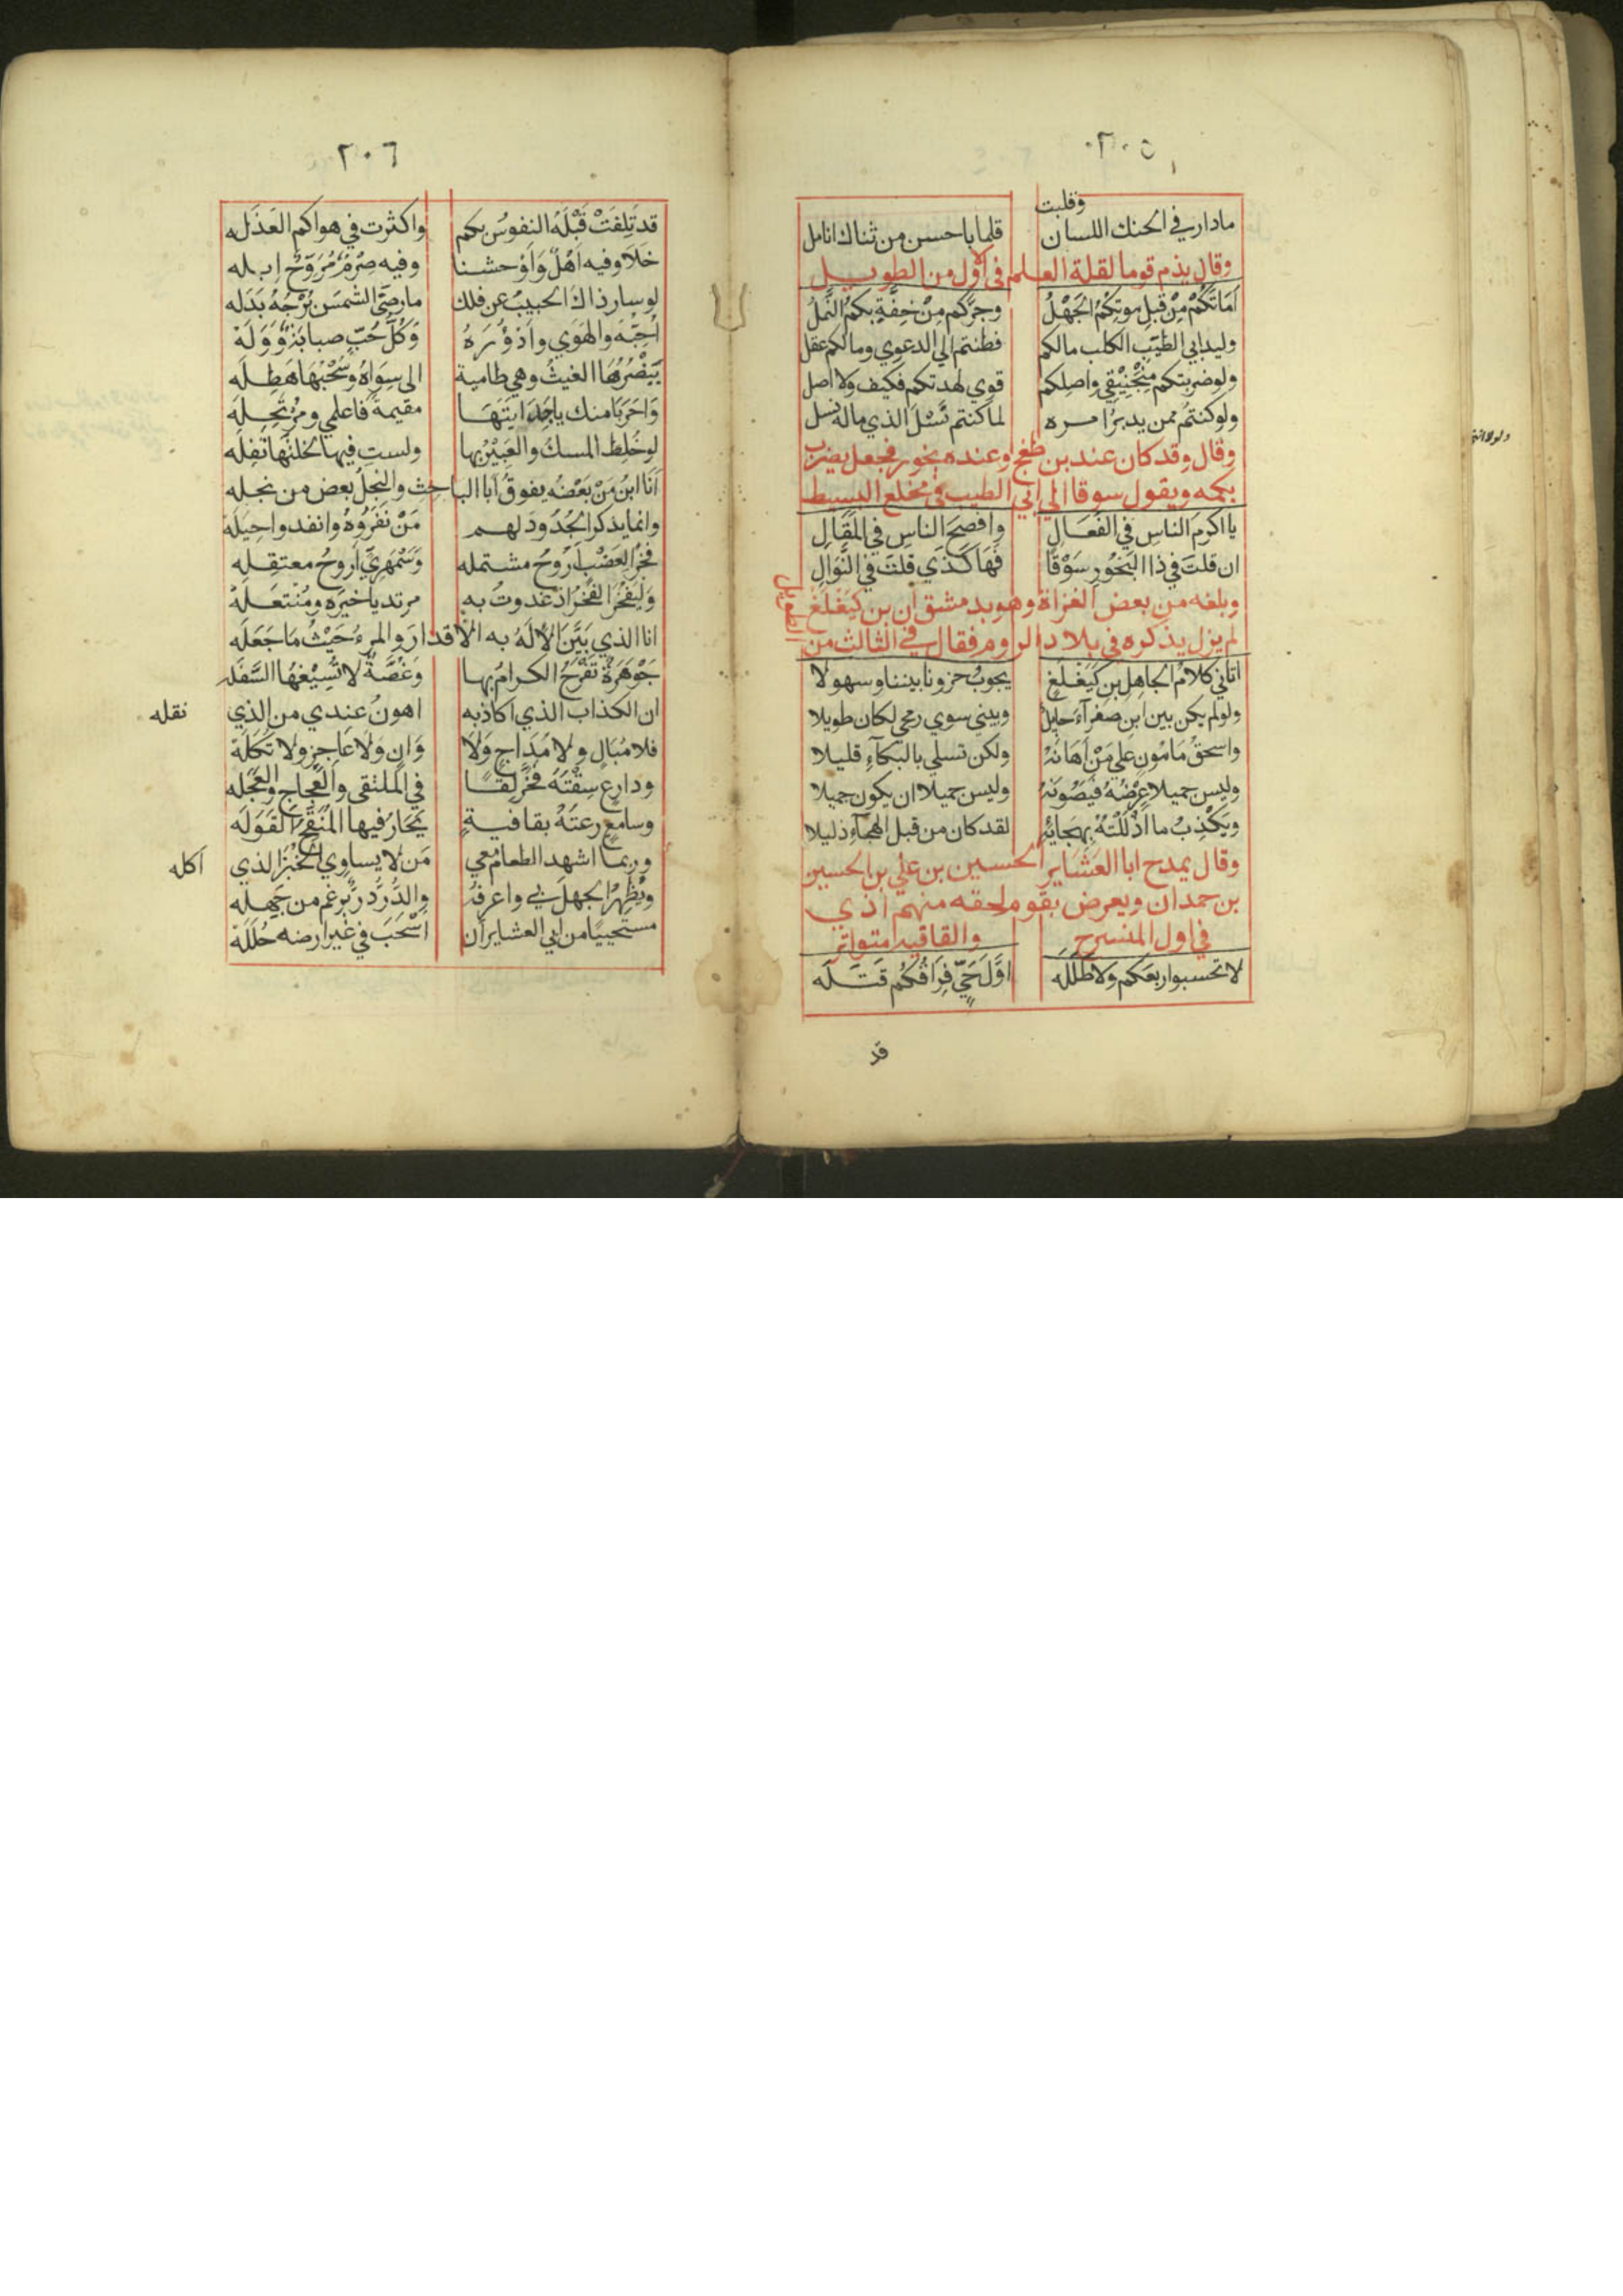 ٢٠٥
وقلبت
مادار في الحنك اللسان قلما باحسن من ثناك انامل
وقال يذم قوما لقلة العلم في اول من الطويل
اَمَاتَكُمْ مِنْ قَبلِ موتِكُمُ الجَهْلُ وجرَّكم مِنْ خِفَّةٍ بكمُ النَّملُ
وليدابي الطيّبِ الكلب مالكم فطنتم الي الدعوي ومالكم عقل
ولوضربتكم منجَنِيْقِي واصلكم قوي لهدتكم فكيف ولا اصل
ولو كنتُم ممن يدبرُ امره لما كنتم نَسْلَ الذي ماله نسل
ولولا انتم
وقال وقد كان عند بن طغج وعنده بخور فجعل يضرب
بكمه ويقول سوقا الي ابي الطيب في مخلع البسيط
يا اكرمَ الناسِ في الفَعَالِ وافصحَ الناسِ في المَقَالِ
ان قلتَ في ذا البَخُورِ سَوْقًا فَهَاكَذَي قلتَ في النَّوَالِ
وبلغه من بعض الغزاة وهو بدمشق ان بن كَيَغلَغ
لم يزل يذكره في بلاد الروم فقال في الثالث من
الطويل
اتاني كلامُ الجاهِلِ بن كَيَغلَغٍ يجوبُ حزونا بيننا وسهولا
ولو لم يكن بين ابنِ صفرآءَ حايلٌ وبيني سوي رمحي لكان طويلا
واسحقُ مَامُون علي مَنْ اَهَانَهُ ولكن تسلي بالبكآءِ قليلا
وليس جميلا عِرْضُهُ فيَصُونَهُ وليس جميلا ان يكون جميلا
ويَكْذِبُ ما اَذْلَلْتُهُ بهجائهِ لقد كان من قبل الهجآءِ ذليلا
وقال يمدح ابا العَشَاير الحسين بن علي بن الحسين
بن حمدان ويعرض بقوم لحقه منهم اذي
في اول المنسرح والقافيه متواتر
لا تحسبوا ربعَكم ولا طَلَلَه اوَّلَ حَيٍّ فِرَاقُكُم قَتَلَه
قد
٢٠٦
قد تَلِفَتْ قَبْلَهُ النفوسُ بكم واكثرت في هواكم العَذَلَه
خَلَا وفيه اَهْلٌ وَاَوْحشنا وفيه صِرْمٌ مُرَوِّحٌ اِبله
لو سار ذاك الحبيبُ عن فلك مارضيَ الشمسَ بُرْجُهُ بَدَلَه
اُحِبُّهُ والهَوَي واَدْؤُرَهُ وَكُلُّ حُبٍّ صبابَةٌ وَوَلَهْ
يَنْصُرُهَا الغيثُ وهي طامية الي سِوَاهُ وسُحْبُهَا هَطِلَه
وَاحَرَبَا منك ياجَدَايَتَهَا مقيمةً فاعلمي ومُرْتَحِلَه
لو خُلِطَ المسكُ والعَبِيْرُ بها ولستِ فيها لخلتُها تَفِلَه
اَنَا ابنُ مَنْ بَعْضُه يفوقُ اَبا الباحِث والنجلُ بعض من نجله
وانما يذكر الجُدُودَ لهم مَنْ نَفَرُوهُ وانفدوا حِيَلَه
فخرُ العَضْبٍ اَرُوحُ مشتمله وَسَمْهرِيٍّ اَروحُ معتقله
وَليَفخَرِ الفَخْرُ اذ غدوتُ به مرتديا خيرَه ومُنْتَعِلَه
انا الذي بَيَّنَ الالَهُ به الاقدارَ والمرءُ حَيْثُ مَا جَعَلَه
جَوْهَرَةٌ تَفْرَحُ الكرامُ بها وَغُصَّةٌ لا تُسِيْغُهَا السَّفَلَه
ان الكذاب الذي اكاذبه اهونُ عندي من الذي
نقله
فلا مُبَالٍ ولا مُدَاجٍ وَلَا وَانٍ وَلَا عَاجِزٍ ولا تُكَلَهْ
ودارِعٍ سِفْتُهُ فخَرَّ لِقًا في الملتقي والعِجاجِ والعَجَله
وسامِعٍ رعتَهُ بقافيةٍ يَحَارُ فيها المُنَقِّحُ القَوَلَه
وربما اشهد الطعامَ معي مَن لا يساوِي الخُبْزَ الذي
اكله
ويُظْهِرُ الجهلَ بي واعرفهُ والدُّرُّ دُرٌّ برغمِ من جَهِلَه
مستحيِيًا من ابي العشايران اَسْحَبَ في غيرِ ارضه حُلَلَهْ